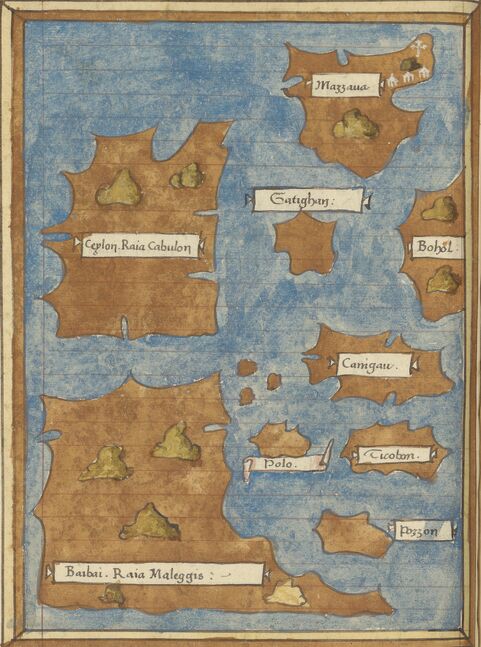 Mazzaua
Gatighan:
Ceylon. Raia Cabulon
Bohol
Canigau.
Polo.
Ticobon.
Pozzon
Baibai. Raia Maleggis: